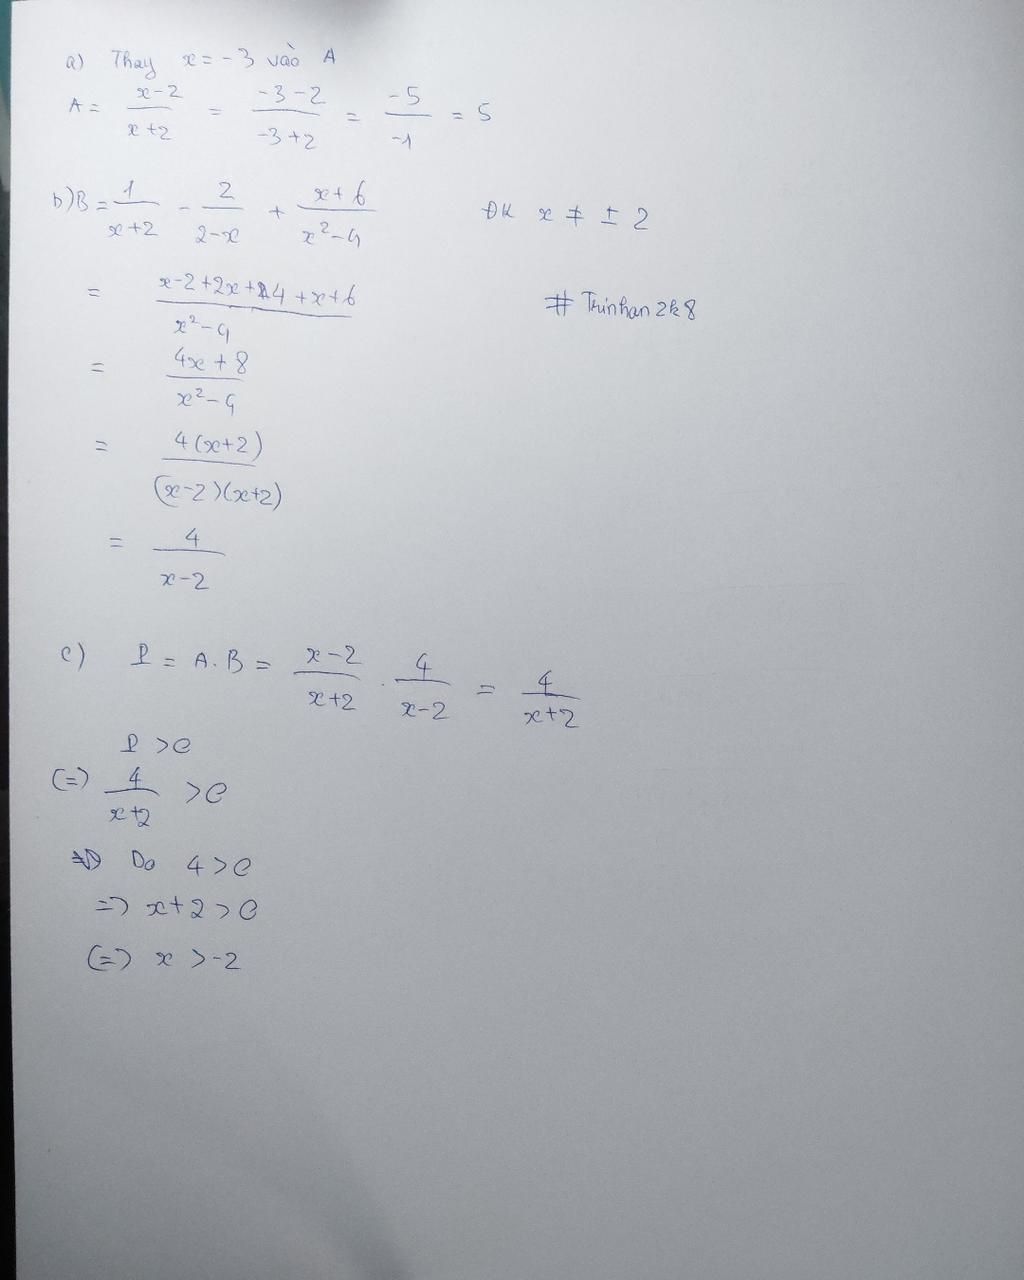 a) Thay x = -3 vào A
A = \frac{x-2}{x+2} = \frac{-3-2}{-3+2} = \frac{-5}{-1} = 5
b) B = \frac{1}{x+2} - \frac{2}{2-x} + \frac{x+6}{x^2-4} ĐK x ≠ ± 2
= \frac{x-2+2x+4+x+6}{x^2-4} # Trinhan2k8
= \frac{4x+8}{x^2-4}
= \frac{4(x+2)}{(x-2)(x+2)}
= \frac{4}{x-2}
c) P = A.B = \frac{x-2}{x+2} . \frac{4}{x-2} = \frac{4}{x+2}
P > 0
(=) \frac{4}{x+2} > 0
Do 4 > 0
=> x+2 > 0
(=) x > -2